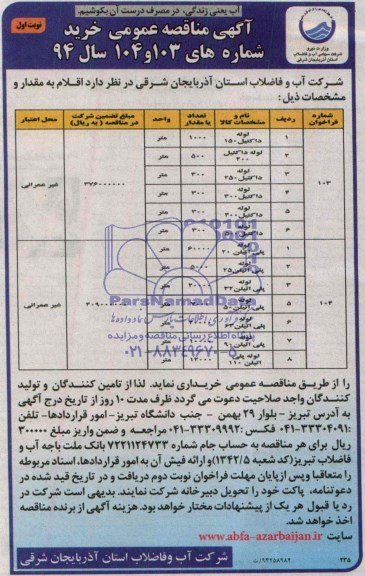 آب یعنی زندگی، در مصرف درست آن بکوشیم.
نوبت اول
آگهی مناقصه عمومی خرید
شماره های ۱۰۳و۱۰۴ سال ۹۴
وزارت نیرو
شرکت آب و فاضلاب استان آذربایجان شرقی در نظر دارد اقلام به مقدار و
مشخصات ذیل:
شماره فراخوان ردیف نام و مشخصات کالا تعداد یا مقدار واحد مبلغ تضمین شرکت در مناقصه (به ریال) محل اعتبار
۱۰۳ ۱ لوله داکتیل ۱۵۰ ۱۰۰۰ متر ۳۷۶۰۰۰۰۰۰ غیر عمرانی
۲ لوله داکتیل ۲۰۰ ۵۰۰ متر
۳ لوله داکتیل ۲۵۰ ۳۰۰ متر
۴ لوله داکتیل ۳۰۰ متر
۵ لوله داکتیل ۳۰۰ متر
۶ لوله ۳۰۰ متر
۱۰۴ ۱ لوله پلی اتیلن ۲۰ ۶۰۰۰۰ متر غیر عمرانی
۲ لوله پلی اتیلن ۲۵ متر
۳ لوله پلی اتیلن ۳۲ متر
۵ لوله پلی اتیلن ۵۰ متر
۶ لوله پلی اتیلن ۶۳ متر
۷ لوله پلی اتیلن ۹۰ متر
۸ لوله پلی اتیلن ۱۱۰ ۱۳۰۰۰ متر
ParsNamadData
پایگاه اطلاع رسانی مناقصه و مزایده
۰۲۱-۸۸۳۴۹۶۷۰-۵
را از طریق مناقصه عمومی خریداری نماید. لذا از تامین کنندگان و تولید
کنندگان واجد صلاحیت دعوت می گردد ظرف مدت ۱۰ روز از تاریخ درج آگهی
به آدرس تبریز - بلوار ۲۹ بهمن - جنب دانشگاه تبریز- امور قراردادها- تلفن
۰۴۱-۳۳۳۰۴۰۹۱: فکس: ۰۴۱-۳۳۳۰۹۹۹۲ مراجعه و ضمن واریز مبلغ ۳۰۰۰۰۰
ریال برای هر مناقصه به حساب جام شماره ۷۲۲۱۱۲۴۷۳۳ بانک ملت باجه آب و
فاضلاب تبریز(کد شعبه ۱۳۴۲/۵)و ارائه فیش آن به امور قراردادها، اسناد مربوطه
را متعاقبا و پس ازپایان مهلت فراخوان نوبت دوم دریافت و در تاریخ قید شده در
دعوتنامه، پاکت خود را تحویل دبیرخانه شرکت نمایند. بدیهی است شرکت در
رد یا قبول هر یک از پیشنهادات مختار خواهد بود. هزینه آگهی از برنده مناقصه
اخذ خواهد شد.
سایت www.abfa-azarbaijan.ir
شرکت آب وفاضلاب استان آذربایجان شرقی